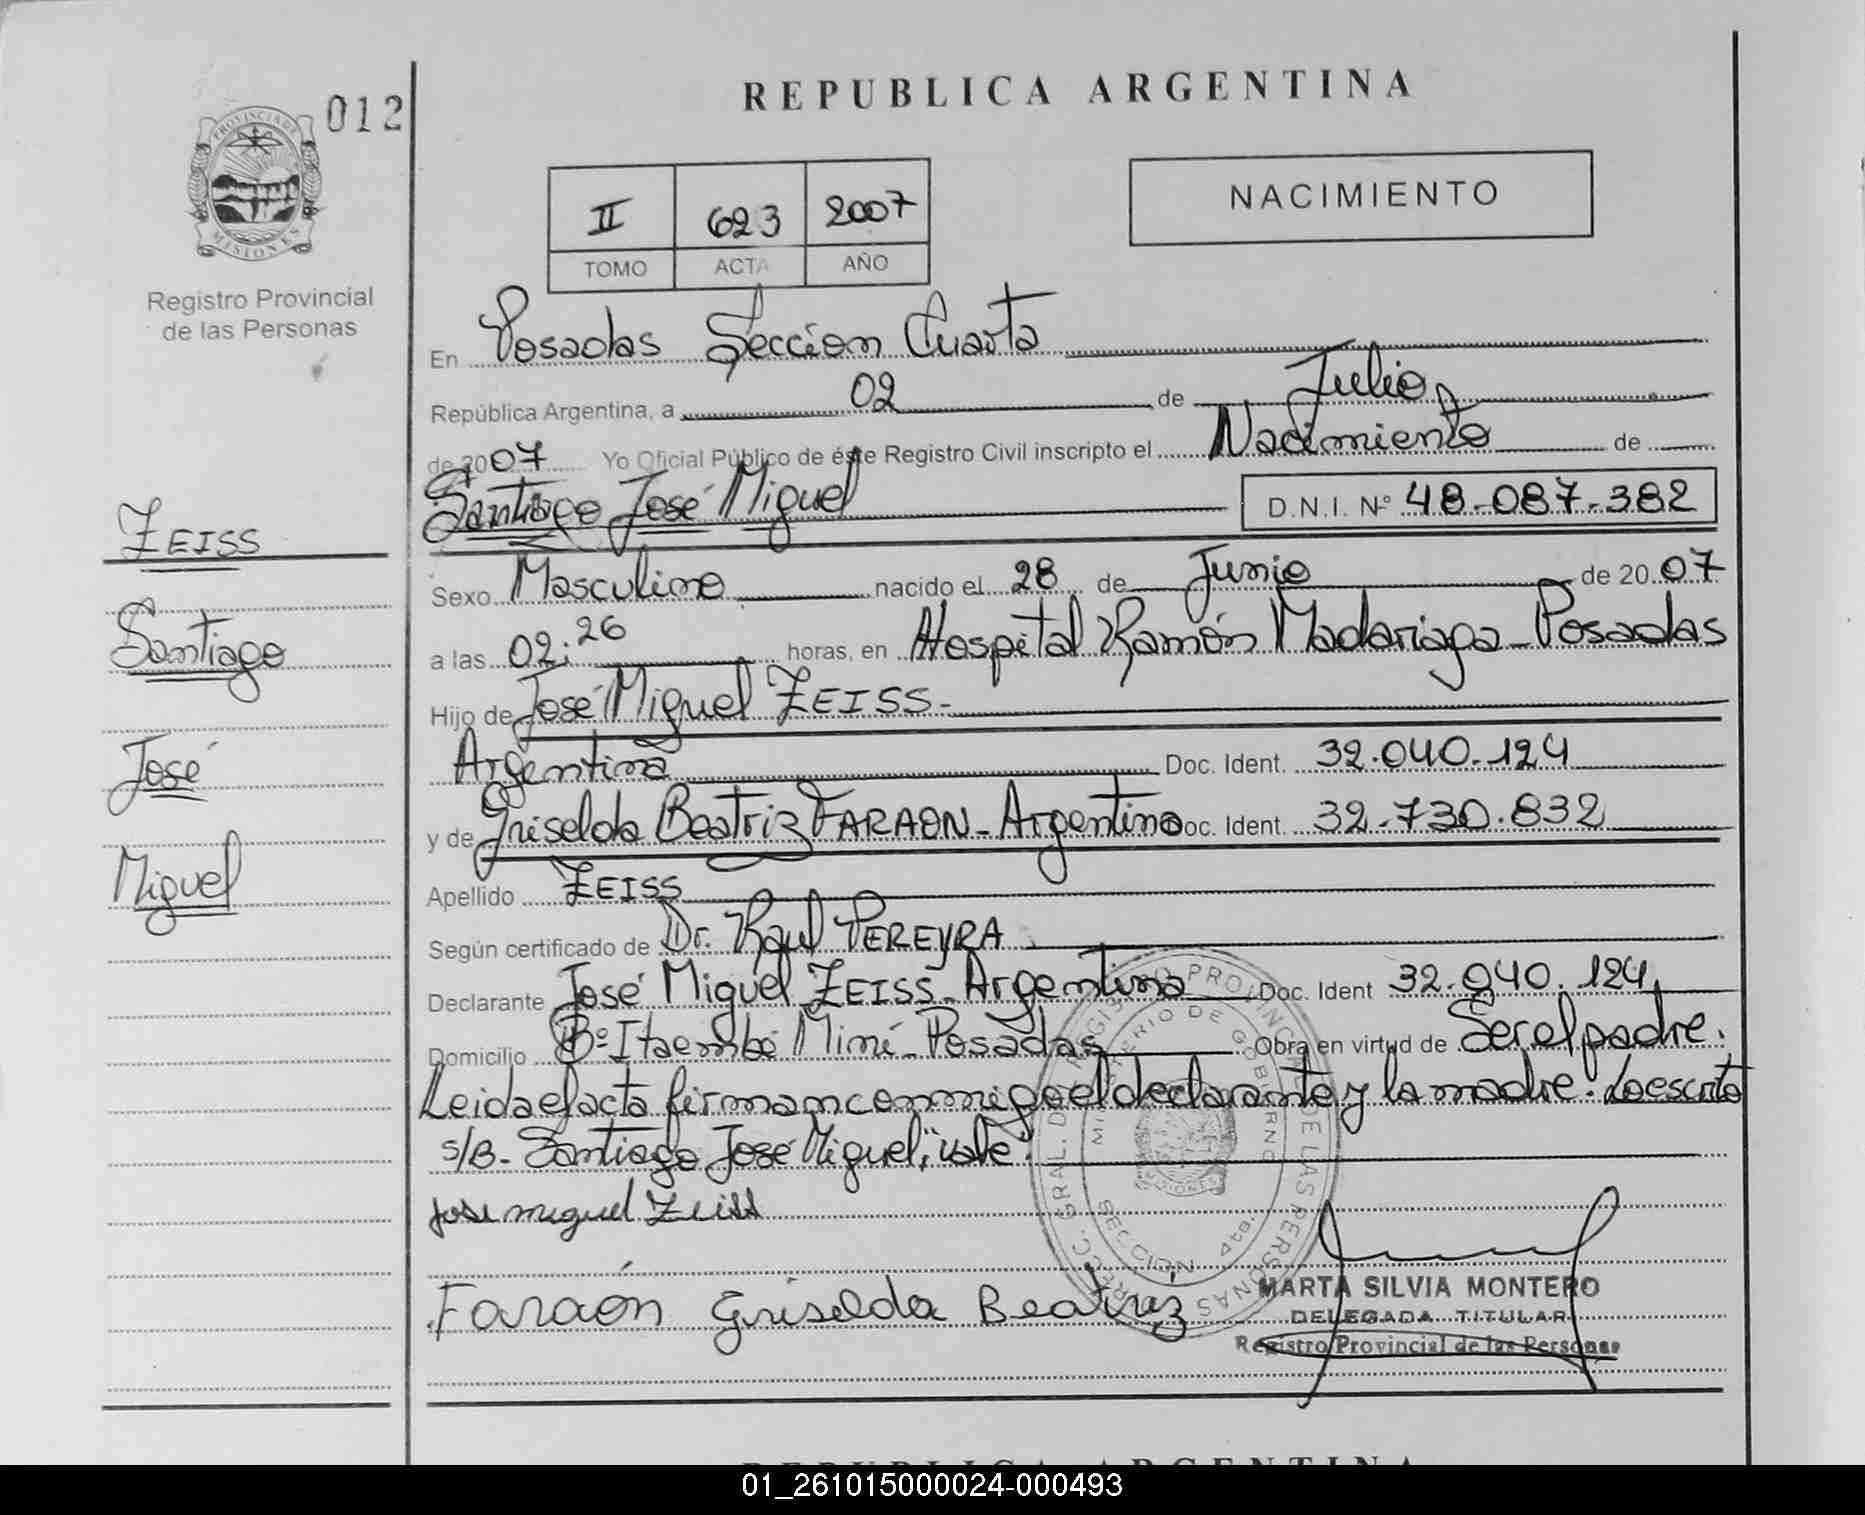 REPUBLICA ARGENTINA
012
PROVINCIA DE
MISIONES
Registro Provincial
de las Personas
II 623 2007
TOMO ACTA AÑO
NACIMIENTO
En Posadas Sección Cuarta
República Argentina, a 02 de Julio
de 2007 Yo Oficial Público de éste Registro Civil inscripto el Nacimiento de
Santiago José Miguel D.N.I. Nº 48.087.382
ZEISS
Santiago
José
Miguel
Sexo Masculino nacido el 28 de Junio de 2007
a las 02:26 horas, en Hospital Ramón Madariaga - Posadas
Hijo de José Miguel ZEISS -
Argentina Doc. Ident. 32.040.124
y de Griselda Beatriz FARAON - Argentina Doc. Ident. 32.730.832
Apellido ZEISS
Según certificado de Dr. Raul PEREYRA
Declarante José Miguel ZEISS - Argentina Doc. Ident 32.040.124
Domicilio Bº Itaembé Miní - Posadas Obra en virtud de Ser el padre.
Leida el acta firman conmigo el declarante y la madre. Lo escrito
s/B - Santiago José Miguel; "vale"
jose miguel Zeiss
Faraón Griselda Beatriz
DIRECC. GRAL. DEL REGISTRO PROVINCIAL DE LAS PERSONAS
MINISTERIO DE GOBIERNO
MISIONES
SECCION 4ta.
MARTA SILVIA MONTERO
DELEGADA TITULAR
Registro Provincial de las Personas
REPUBLICA ARGENTINA
01_261015000024-000493